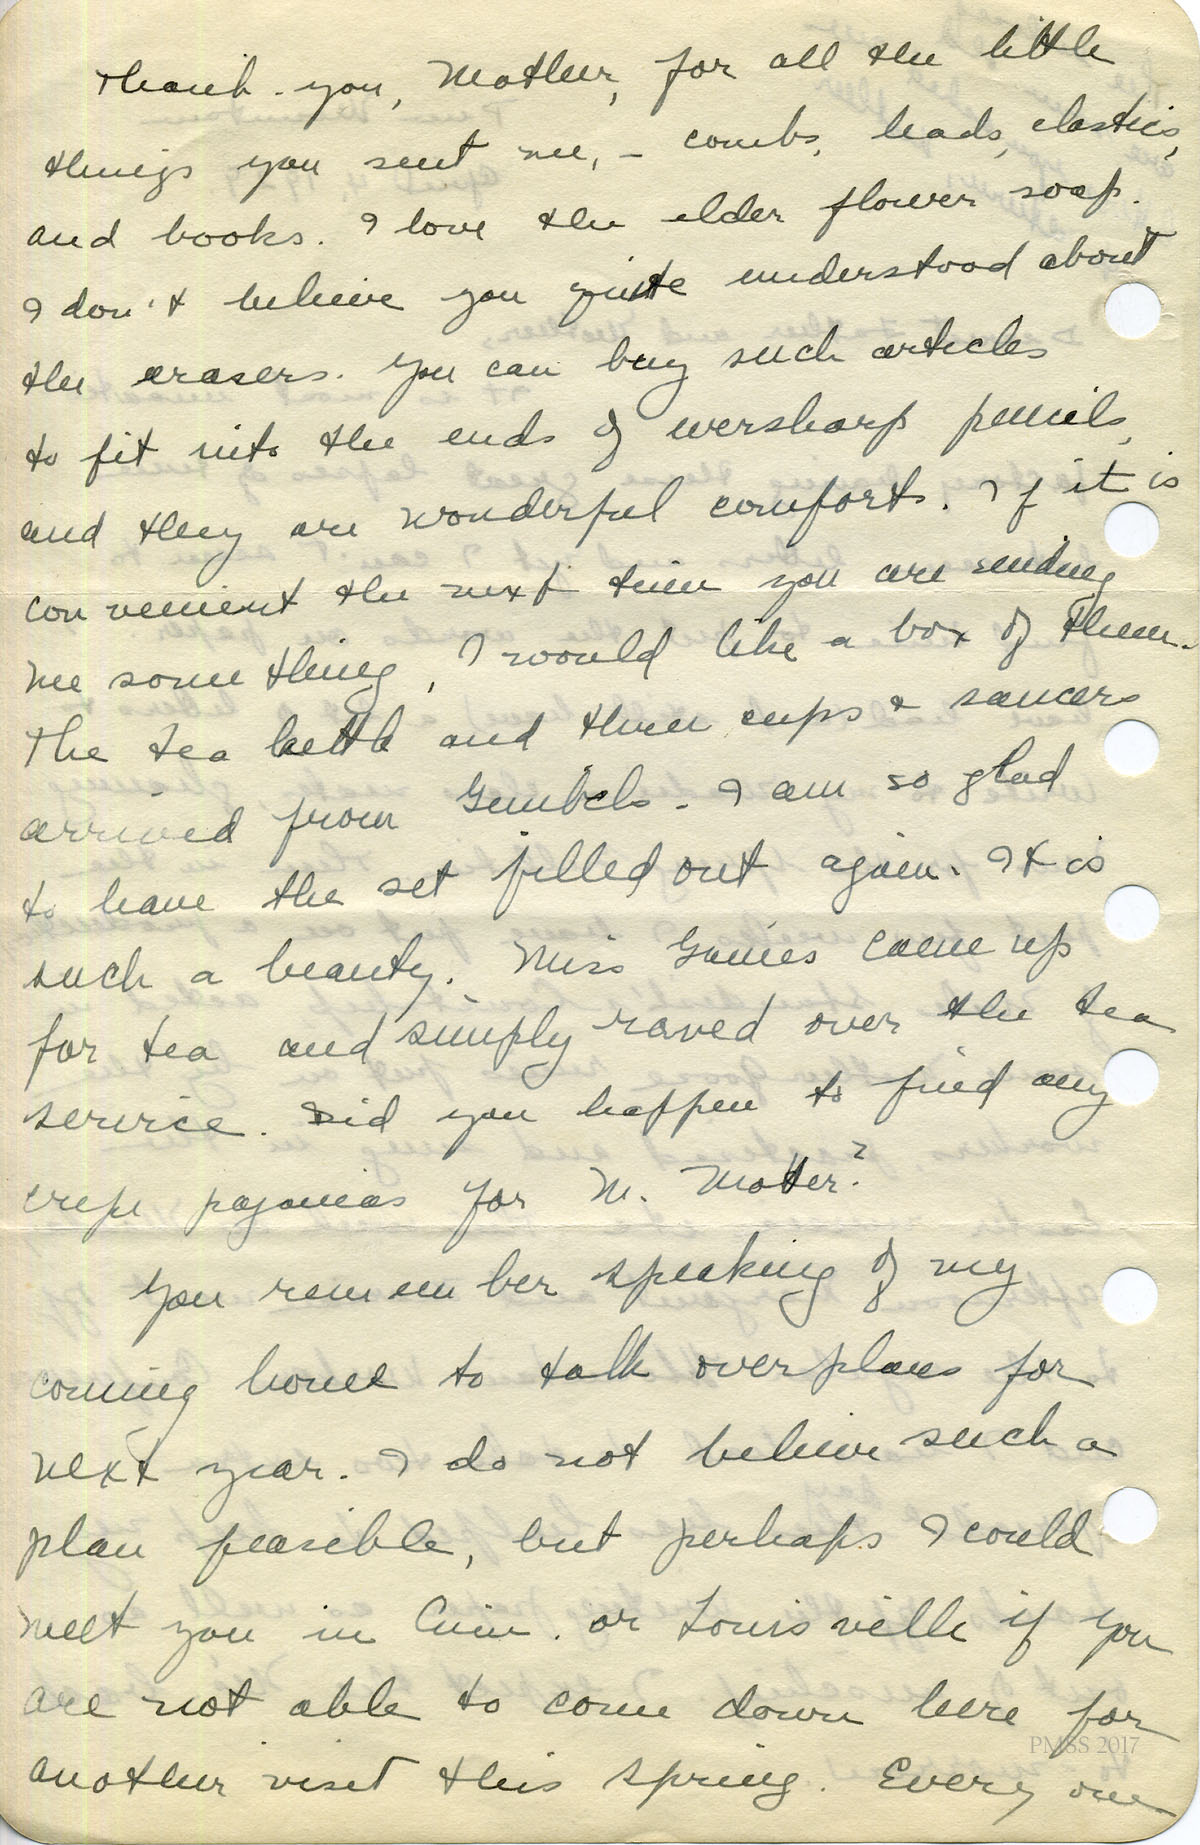 Thank you, Mother, for all the little
things you sent me, - combs, leads, elastics,
and books. I love the elder flower soap.
I don't believe you quite understood about
the erasers. You can buy such articles
to fit into the ends of eversharp pencils,
and they are wonderful comforts. If it is
convenient the next time you are sending
me something, I would like a box of them.
The tea kettle and three cups & saucers
arrived from Gimbels. I am so glad
to have the set filled out again. It is
such a beauty. Miss Gaines came up
for tea and simply raved over the tea
service. Did you happen to find any
crepe pajamas for M. Motter?
You remember speaking of my
coming home to talk over plans for
next year. I do not believe such a
plan feasible, but perhaps I could
meet you in Cinn. or Louisville if you
are not able to come down here for
another visit this spring. Every one
PMSS 2017